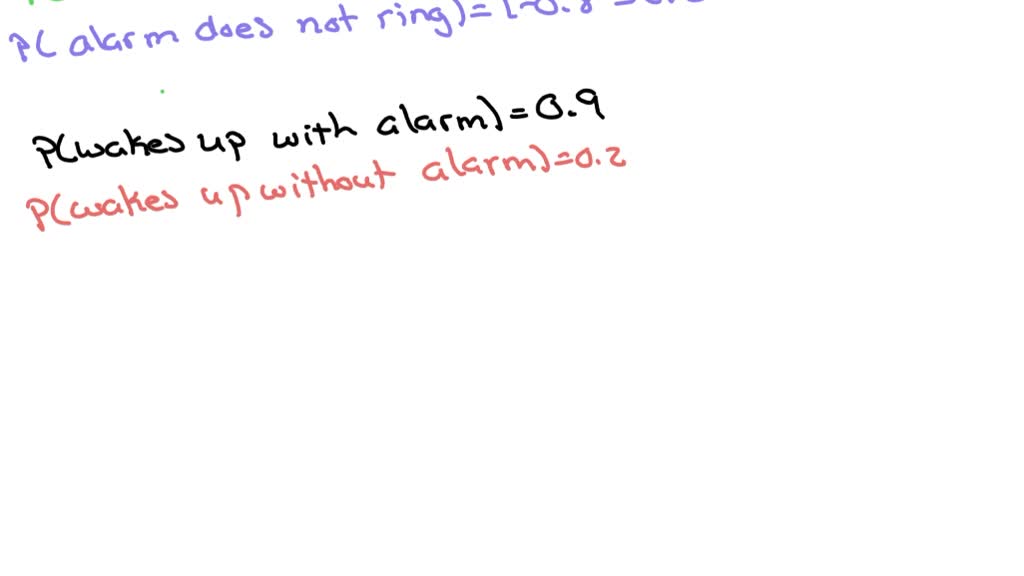 P( alarm does not ring)= 1-0.8
P(wakes up with alarm)=0.9
P(wakes up without alarm)=0.2